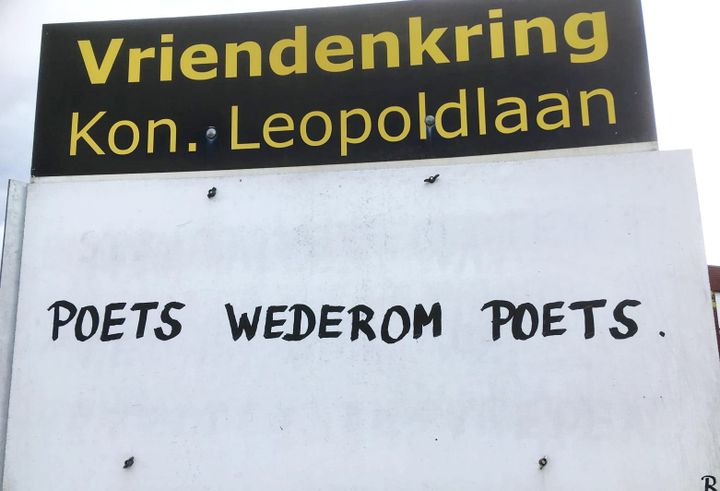 Vriendenkring
Kon. Leopoldlaan
POETS WEDEROM POETS.